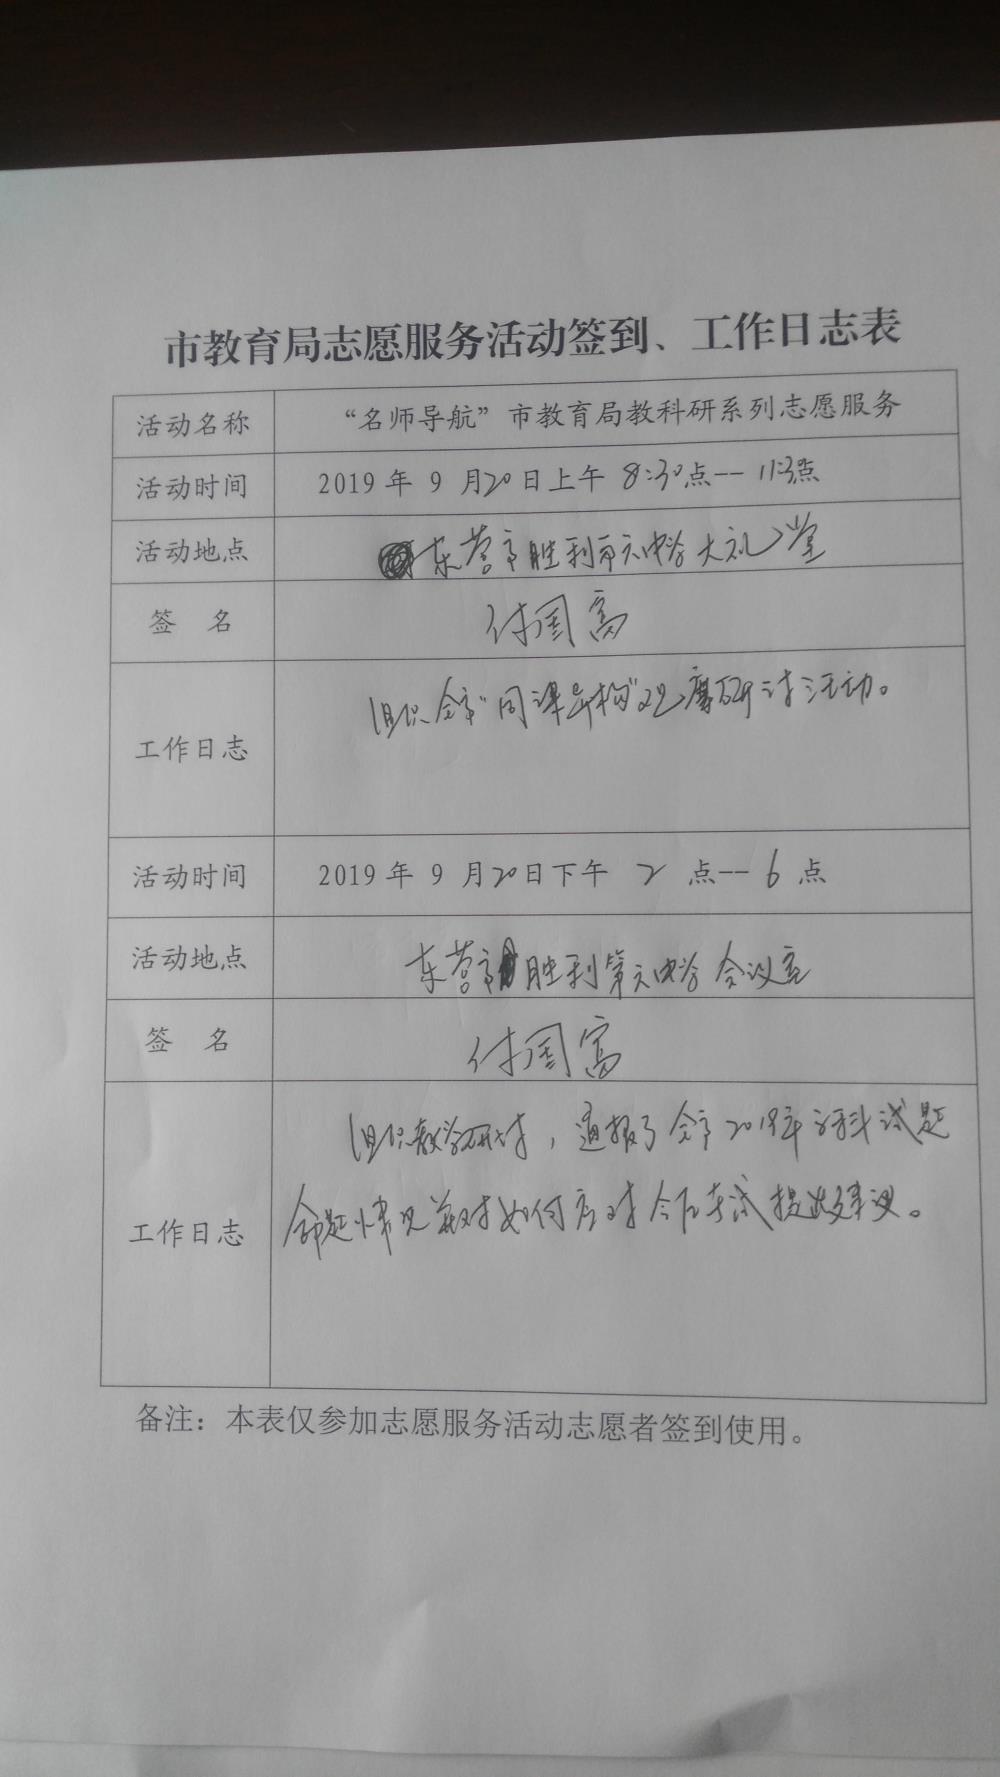 市教育局志愿服务活动签到、工作日志表
活动名称 “名师导航”市教育局教科研系列志愿服务
活动时间 2019年 9 月20日上午 8:30点--11:30点
活动地点 东营市胜利第六中学大礼堂
签 名 付国富
工作日志 组织全市“同课异构”观摩研讨活动。
活动时间 2019年 9 月20日下午 2 点--6 点
活动地点 东营市胜利第六中学会议室
签 名 付国富
组织教学研讨，通报了全市2019年 试题
工作日志 命题情况并对如何应对今后考试提出建议。
备注：本表仅参加志愿服务活动志愿者签到使用。